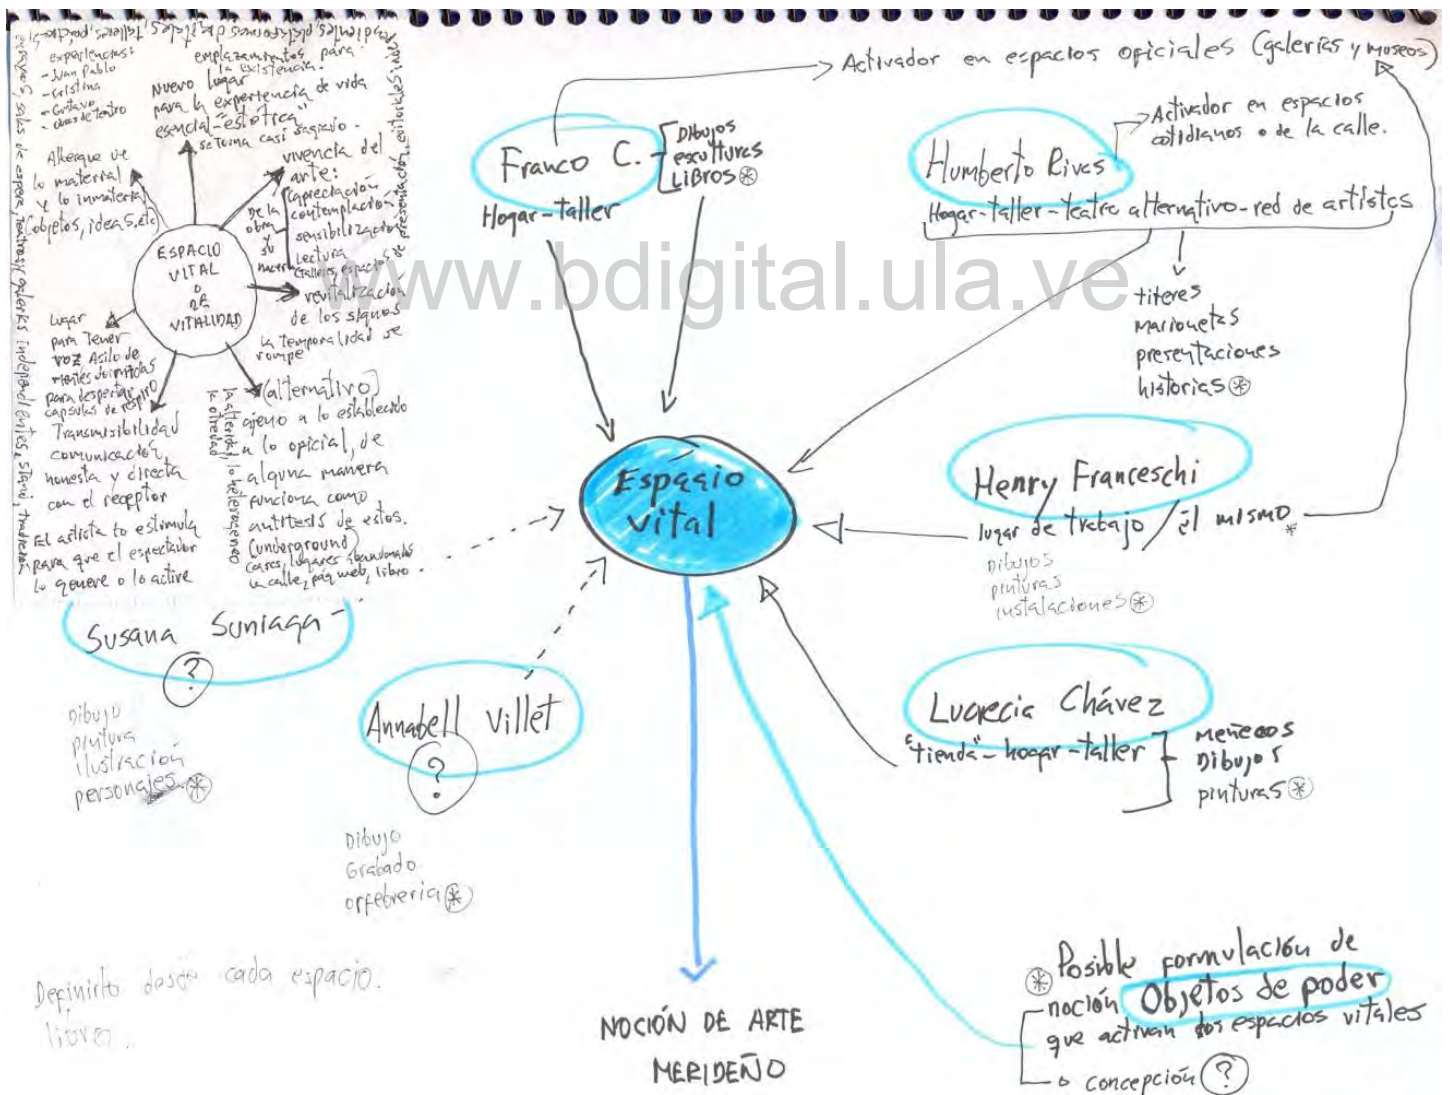 experiencias:
- Juan Pablo
- Cristina
- Gustavo
- obras de teatro
emplazamientos para
la existencia.
Nuevo lugar
para la experiencia de vida
esencial-"estética"
se torna casi sagrado.
Albergue de
lo material
y lo inmaterial
(objetos, ideas, etc)
vivencia del
arte:
De la
obra
y
su
apreciación
contemplación
sensibilización
Lectura
(talleres, espacios de presentación, editoriales
revitalización
de los signos
La temporalidad se
rompe
ESPACIO
VITAL
o
DE
VITALIDAD
Lugar
para Tener
voz Asilo de
mentes dormidas
para despertar
capsulas de respiro
Transmisibilidad
comunicación
honesta y directa
con el receptor
El artista lo estimula
para que el espectador
lo genere o lo active
(alternativo)
ajeno a lo establecido
a lo oficial, de
alguna manera
funciona como
antitesis de estos.
(underground)
lugares abandonados
la calle, pág web, libro.
lo heterogeneo
salas de espera, teatros y galerías independientes,
Activador en espacios oficiales (galerías y museos)
Franco C.
Dibujos
esculturas
LIBROS *
Hogar-taller
Humberto Rivas
Activador en espacios
cotidianos o de la calle.
Hogar-taller-teatro alternativo-red de artistas
titeres
marionetas
presentaciones
historias *
www.bdigital.ula.ve
Espacio
vital
Henry Franceschi
lugar de trabajo / él mismo *
Dibujos
pinturas
instalaciones *
Susana Suniaga
?
Dibujo
pintura
ilustración
personajes. *
Annabell Villet
?
Dibujo
Grabado
orfebreria *
Lucrecia Chávez
"tienda"-hogar-taller
Muñecos
Dibujos
pinturas *
Definirlo desde cada espacio.
NOCIÓN DE ARTE
MERIDEÑO
* Posible formulación de
noción Objetos de poder
que activan los espacios vitales
o concepción ?